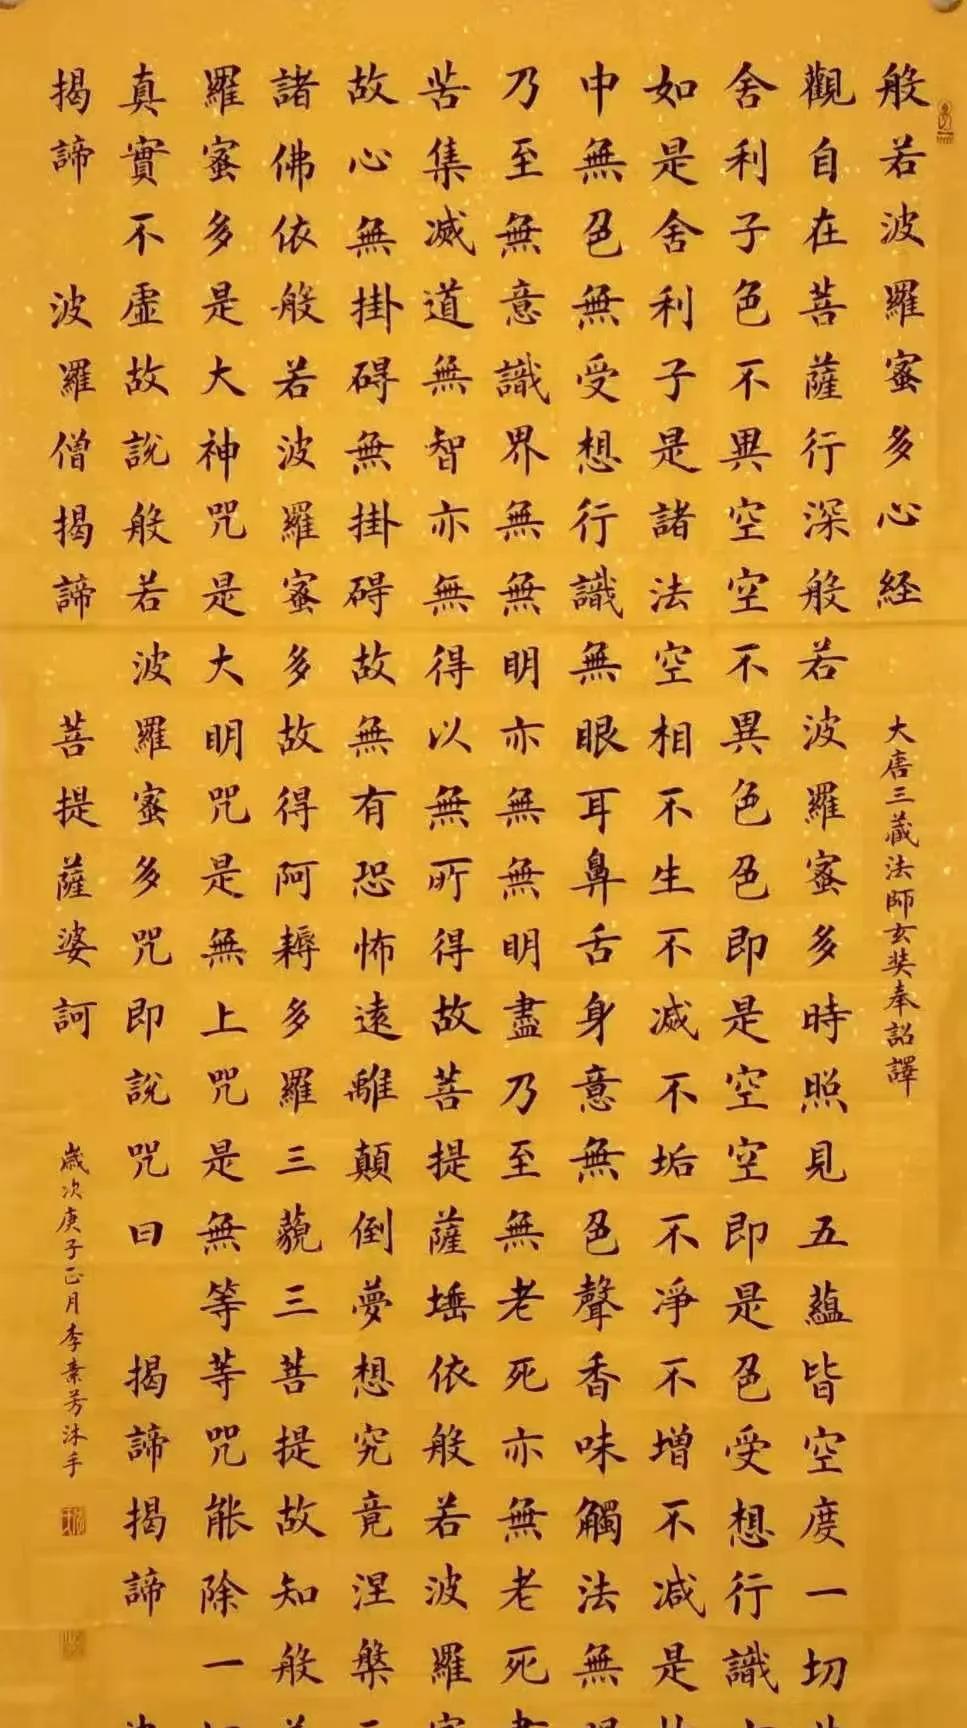 般若波羅蜜多心経
大唐三藏法師玄奘奉詔譯
觀自在菩薩行深般若波羅蜜多時照見五蘊皆空度一切
舍利子色不異空空不異色色即是空空即是色受想行識
如是舍利子是諸法空相不生不滅不垢不淨不增不減是
中無色無受想行識無眼耳鼻舌身意無色聲香味觸法無
乃至無意識界無無明亦無無明盡乃至無老死亦無老死
苦集滅道無智亦無得以無所得故菩提薩埵依般若波羅
故心無掛碍無掛碍故無有恐怖遠離顛倒夢想究竟涅槃
諸佛依般若波羅蜜多故得阿耨多羅三藐三菩提故知般
羅蜜多是大神咒是大明咒是無上咒是無等等咒能除一
真實不虛故說般若波羅蜜多咒即說咒曰 揭諦揭諦
揭諦 波羅僧揭諦 菩提薩婆訶
歲次庚子正月李素芳沐手